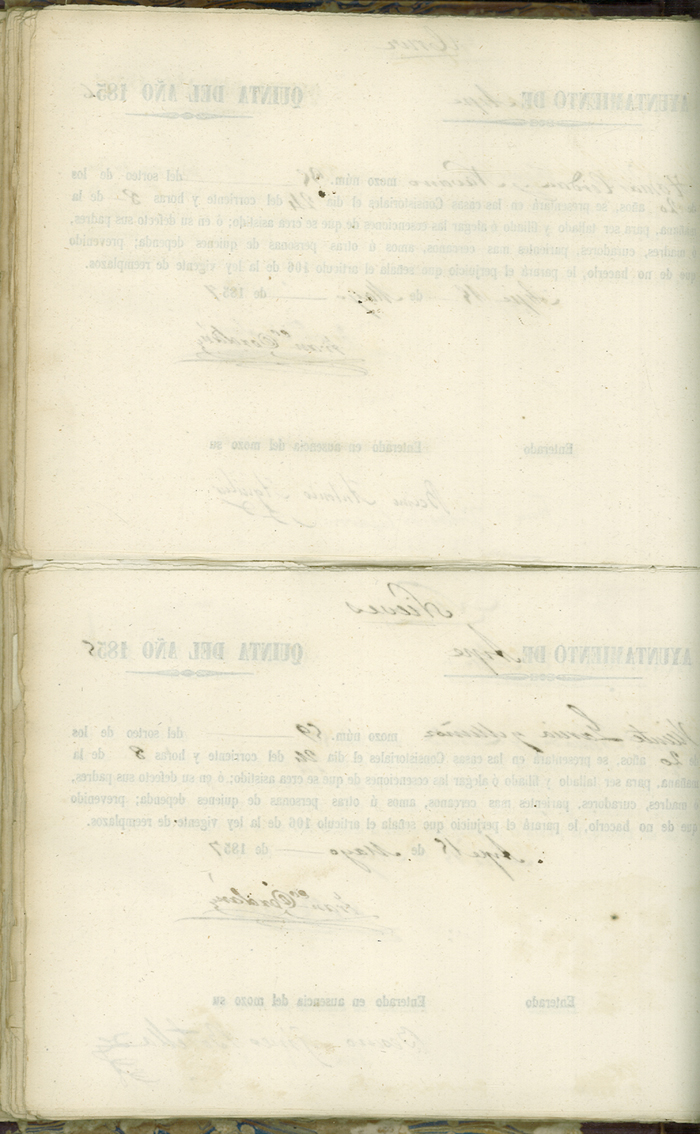 AYUNTAMIENTO DE Aspe QUINTA DEL AÑO 1856
mozo núm. del sorteo de los
de 20 años, se presentará en las casas Consistoriales el dia 24 del corriente y horas de la
mañana, para ser tallado y filiado ó alegar las escenciones de que se crea asistido; ó en su defecto sus padres,
ó madres, curadores, parientes mas cercanos, amos ó otras personas de quienes dependa; prevenido
que de no hacerlo, le parará el perjuicio que señala el articulo 106 de la ley vigente de reemplazos.
Aspe 18 de Mayo de 1857
Enterado Enterado en ausencia del mozo su
Antonio
Nieves
AYUNTAMIENTO DE Aspe QUINTA DEL AÑO 1855
Vicente mozo núm. 59 del sorteo de los
de 20 años, se presentará en las casas Consistoriales el dia 24 del corriente y horas 8 de la
mañana, para ser tallado y filiado ó alegar las escenciones de que se crea asistido; ó en su defecto sus padres,
ó madres, curadores, parientes mas cercanos, amos ú otras personas de quienes dependa; prevenido
que de no hacerlo, le parará el perjuicio que señala el articulo 106 de la ley vigente de reemplazos.
Aspe 18 de Mayo de 1857
Enterado Enterado en ausencia del mozo su